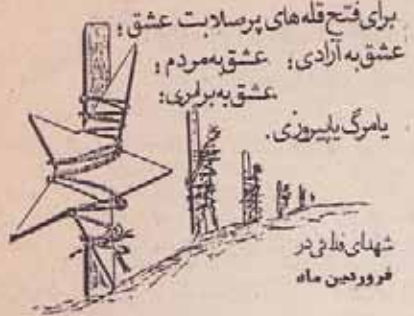 برای فتح قله‌های پرصلابت عشق؛
عشق به آزادی؛ عشق به مردم؛
عشق به برابری؛
یا مرگ یا پیروزی.
شهدای فدائی در
فروردین ماه